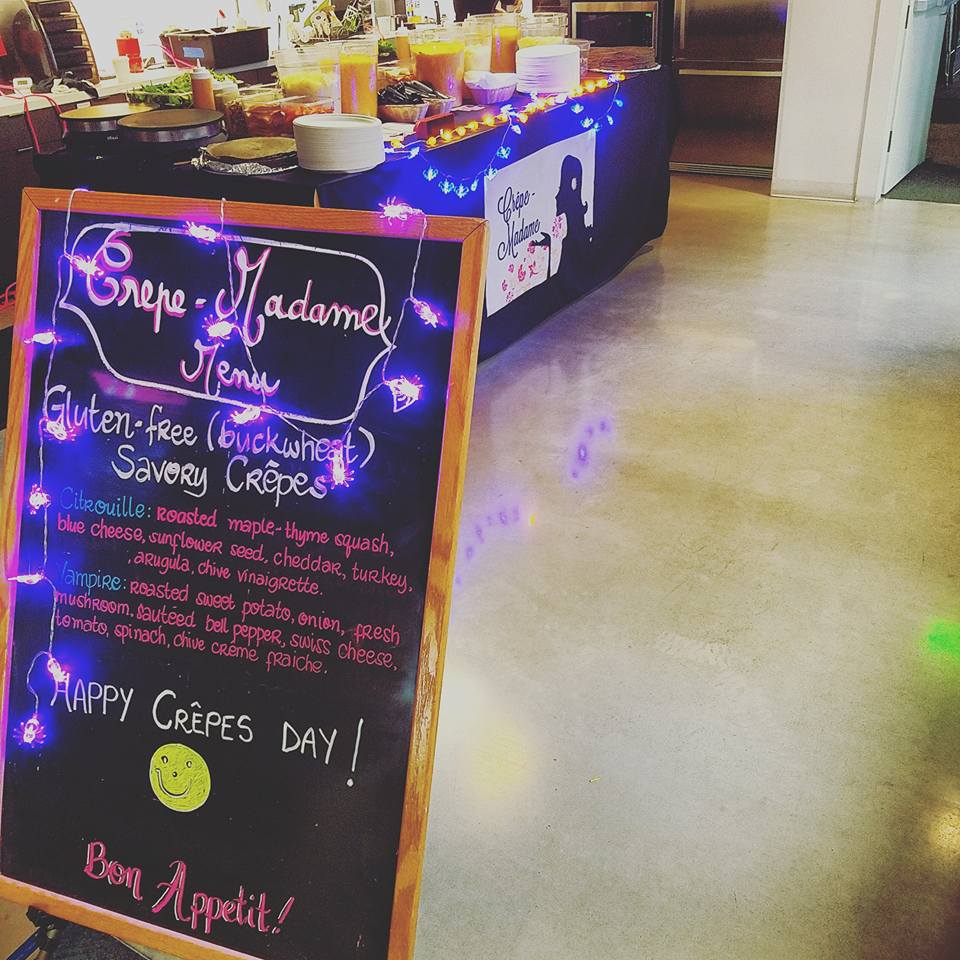 Crêpe-Madame
Menu
Gluten-free (buckwheat)
Savory Crêpes
Citrouille: roasted maple-thyme squash,
blue cheese, sunflower seed, cheddar, turkey,
, arugula, chive vinaigrette.
Vampire: roasted sweet potato, onion, fresh
mushroom, sautéed bell pepper, swiss cheese,
tomato, spinach, chive crème fraiche.
HAPPY CRÊPES DAY!
Bon Appetit!
Crêpe-
Madame